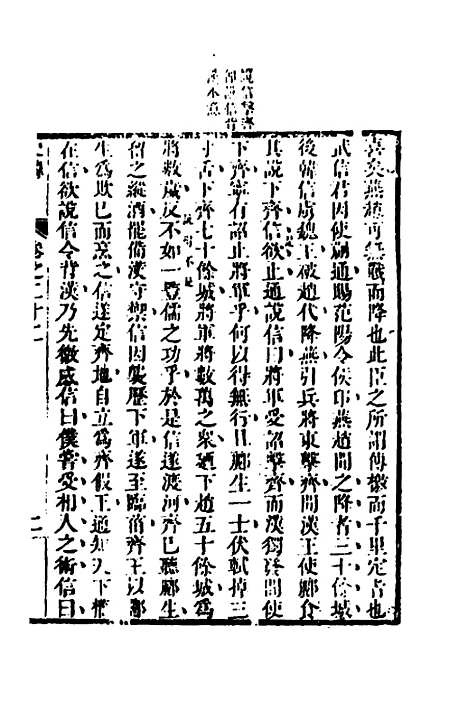 說信擊齊
喜矣燕趙可無戰而降也此臣之所謂傳檄而千里定者也
武信君因使蒯通賜范陽令侯印燕趙聞之降者三十餘城
後韓信虜魏王破趙代降燕引兵將東擊齊聞漢王使酈食
其說下齊信欲止通說信曰將軍受詔擊齊而漢獨發間使
下齊寧有詔止將軍乎何以得無行且酈生一士伏軾掉三
寸舌下齊七十餘城將軍將數萬之衆迺下趙五十餘城爲
將數歲反不如一豎儒之功乎於是信遂渡河齊已聽酈生
留之縱酒罷備漢守禦信因襲歷下軍遂至臨菑齊王以酈
生爲欺已而烹之信遂定齊地自立爲齊假王通知天下權
在信欲說信令背漢乃先微感信曰僕嘗受相人之術信曰
卷之二十二